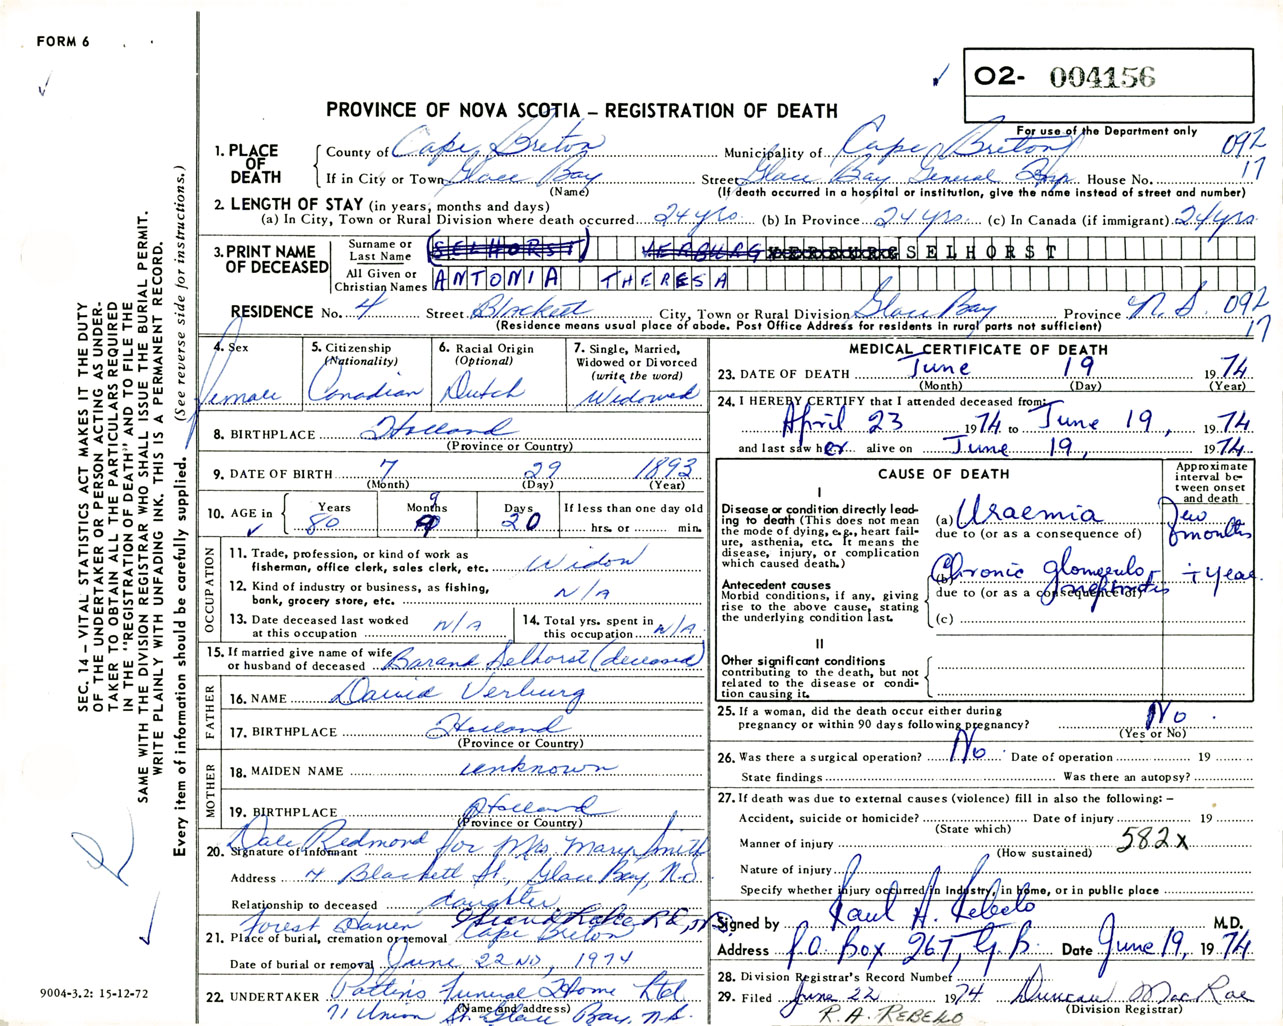 FORM 6
O2- 004156
PROVINCE OF NOVA SCOTIA – REGISTRATION OF DEATH
For use of the Department only
1. PLACE OF DEATH
County of Cape Breton Municipality of Cape Breton 092
If in City or Town Glace Bay Street Glace Bay General Hosp. House No. 17
(Name) (If death occurred in a hospital or institution, give the name instead of street and number)
2. LENGTH OF STAY (in years, months and days)
(a) In City, Town or Rural Division where death occurred 24 yrs (b) In Province 24 yrs (c) In Canada (if immigrant) 24 yrs
3. PRINT NAME OF DECEASED
Surname or Last Name (SELHORST) VERBURG VERBURG SELHORST
All Given or Christian Names ANTONIA THERESA
RESIDENCE No. 4 Street Blackett City, Town or Rural Division Glace Bay Province N.S. 092
(Residence means usual place of abode. Post Office Address for residents in rural parts not sufficient) 17
4. Sex
female
5. Citizenship
(Nationality)
Canadian
6. Racial Origin
(Optional)
Dutch
7. Single, Married,
Widowed or Divorced
(write the word)
Widowed
8. BIRTHPLACE Holland
(Province or Country)
9. DATE OF BIRTH 7 29 1893
(Month) (Day) (Year)
10. AGE in
Years Months Days If less than one day old
80 9 20 hrs. or min.
OCCUPATION
11. Trade, profession, or kind of work as
fisherman, office clerk, sales clerk, etc. Widow
12. Kind of industry or business, as fishing,
bank, grocery store, etc. N/A
13. Date deceased last worked
at this occupation N/A
14. Total yrs. spent in
this occupation N/A
15. If married give name of wife
or husband of deceased Barand Selhorst (deceased)
FATHER
16. NAME David Verburg
17. BIRTHPLACE Holland
(Province or Country)
MOTHER
18. MAIDEN NAME unknown
19. BIRTHPLACE Holland
(Province or Country)
Dale Redmond for Mrs. Mary Smith
20. Signature of informant
Address 4 Blackett St., Glace Bay, N.S.
Relationship to deceased daughter
Forest Haven
21. Place of burial, cremation or removal Cape Breton
Date of burial or removal June 22ND, 1974
22. UNDERTAKER Patten's Funeral Home Ltd
(Name and address)
71 Union St. Glace Bay, N.S.
MEDICAL CERTIFICATE OF DEATH
23. DATE OF DEATH June 19 1974
(Month) (Day) (Year)
24. I HEREBY CERTIFY that I attended deceased from:
April 23 1974 to June 19, 1974
and last saw her alive on June 19, 1974
CAUSE OF DEATH
Approximate interval between onset and death
I
Disease or condition directly lead-
ing to death (This does not mean
the mode of dying, e.g., heart fail-
ure, asthenia, etc. It means the
disease, injury, or complication
which caused death.)
(a) Uraemia few months
due to (or as a consequence of)
Antecedent causes
Morbid conditions, if any, giving
rise to the above cause, stating
the underlying condition last.
(b) Chronic glomerulo nephritis + year
due to (or as a consequence of)
(c)
II
Other significant conditions
contributing to the death, but not
related to the disease or condi-
tion causing it.
25. If a woman, did the death occur either during
pregnancy or within 90 days following pregnancy? No
(Yes or No)
26. Was there a surgical operation? No Date of operation 19
State findings Was there an autopsy?
27. If death was due to external causes (violence) fill in also the following: –
Accident, suicide or homicide? Date of injury 19
(State which)
Manner of injury 582X
(How sustained)
Nature of injury
Specify whether injury occurred in industry, in home, or in public place
Signed by Raul A. Rebelo M.D.
Address P.O. Box 267, G.B. Date June 19, 1974
28. Division Registrar's Record Number
29. Filed June 22 1974 Duncan MacRae
(Division Registrar)
R. A. REBELLO
SEC. 14 – VITAL STATISTICS ACT MAKES IT THE DUTY
OF THE UNDERTAKER OR PERSON ACTING AS UNDER-
TAKER TO OBTAIN ALL THE PARTICULARS REQUIRED
IN THE "REGISTRATION OF DEATH" AND TO FILE THE
SAME WITH THE DIVISION REGISTRAR WHO SHALL ISSUE THE BURIAL PERMIT.
WRITE PLAINLY WITH UNFADING INK. THIS IS A PERMANENT RECORD.
Every item of information should be carefully supplied. (See reverse side for instructions.)
9004-3.2: 15-12-72